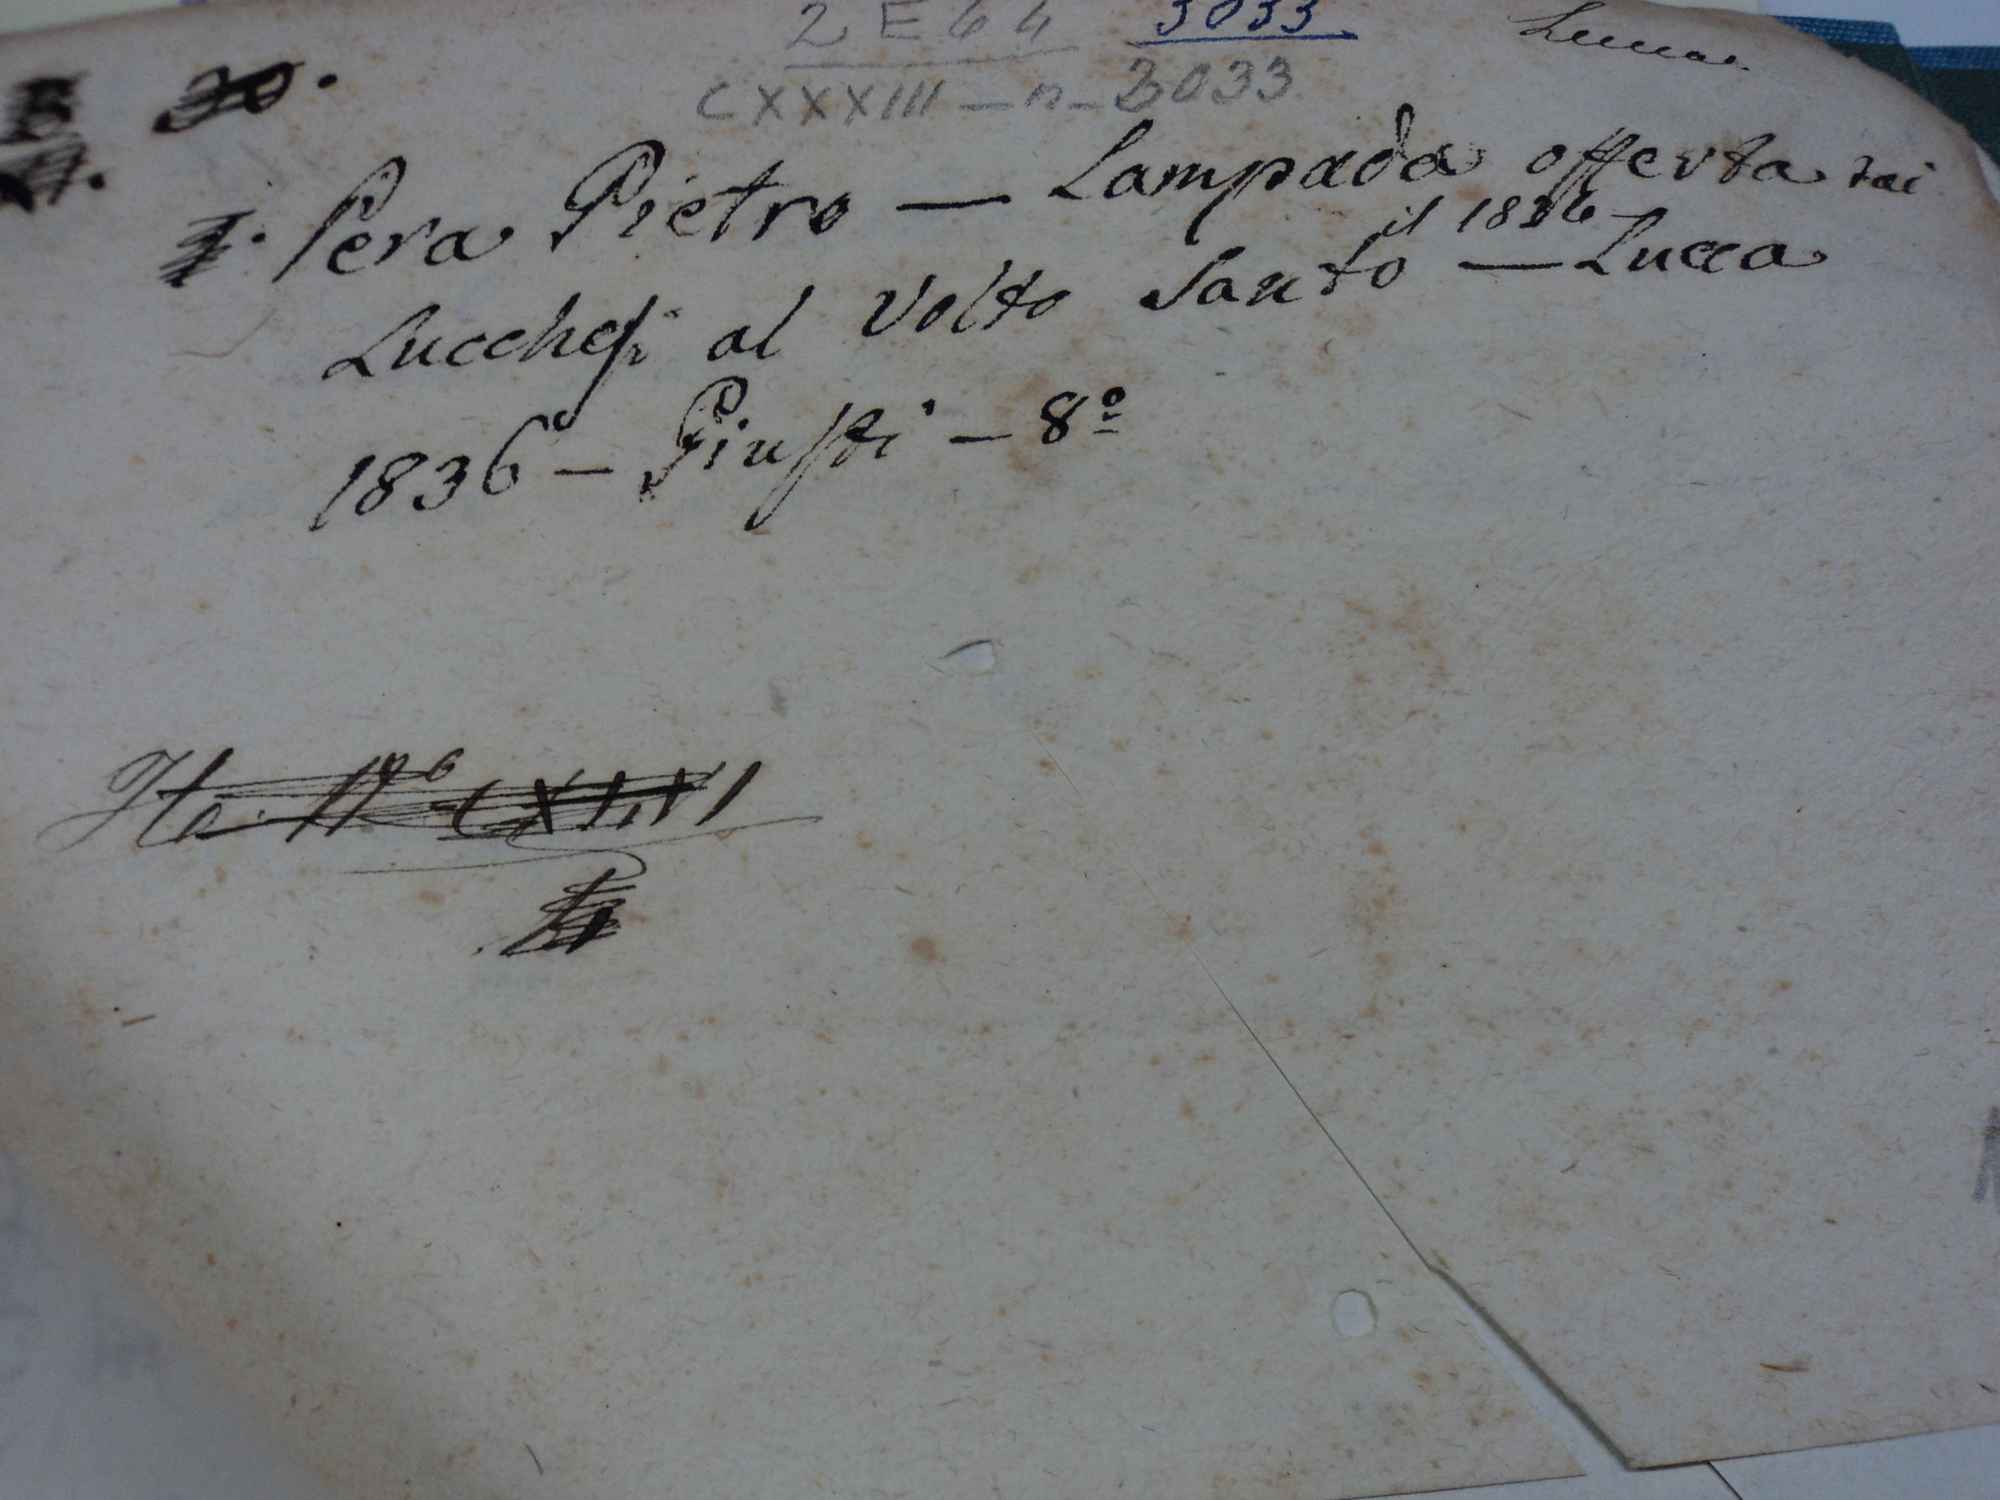 2 E 64 3033 Lucca.
CXXXIII - n. 3033
30.
Pera Pietro — Lampada offerta dai
il 1836
Lucchesi al Volto Santo — Lucca
1836 — Giusti — 8º
CXLVI